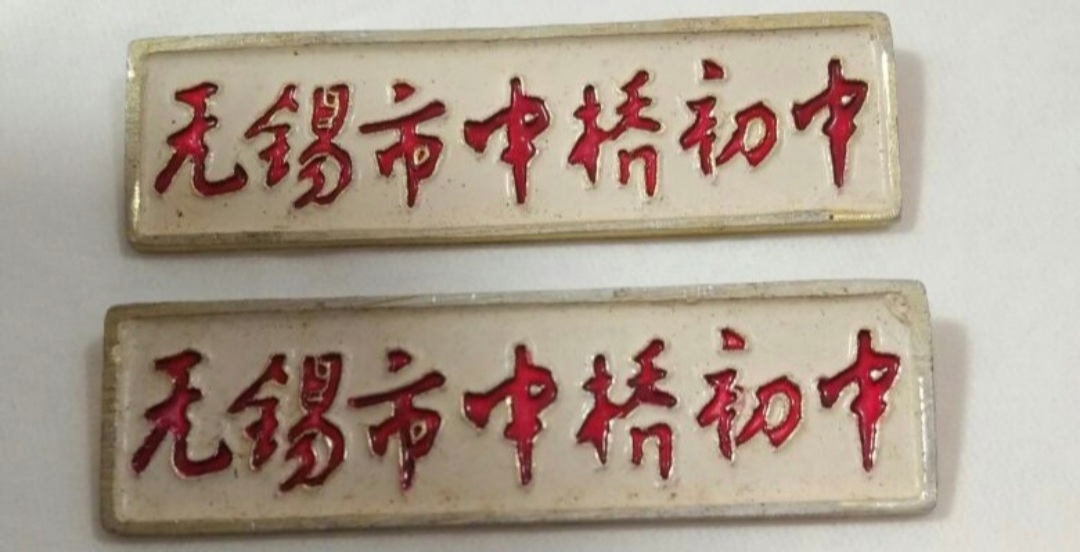 无锡市中桥初中
无锡市中桥初中